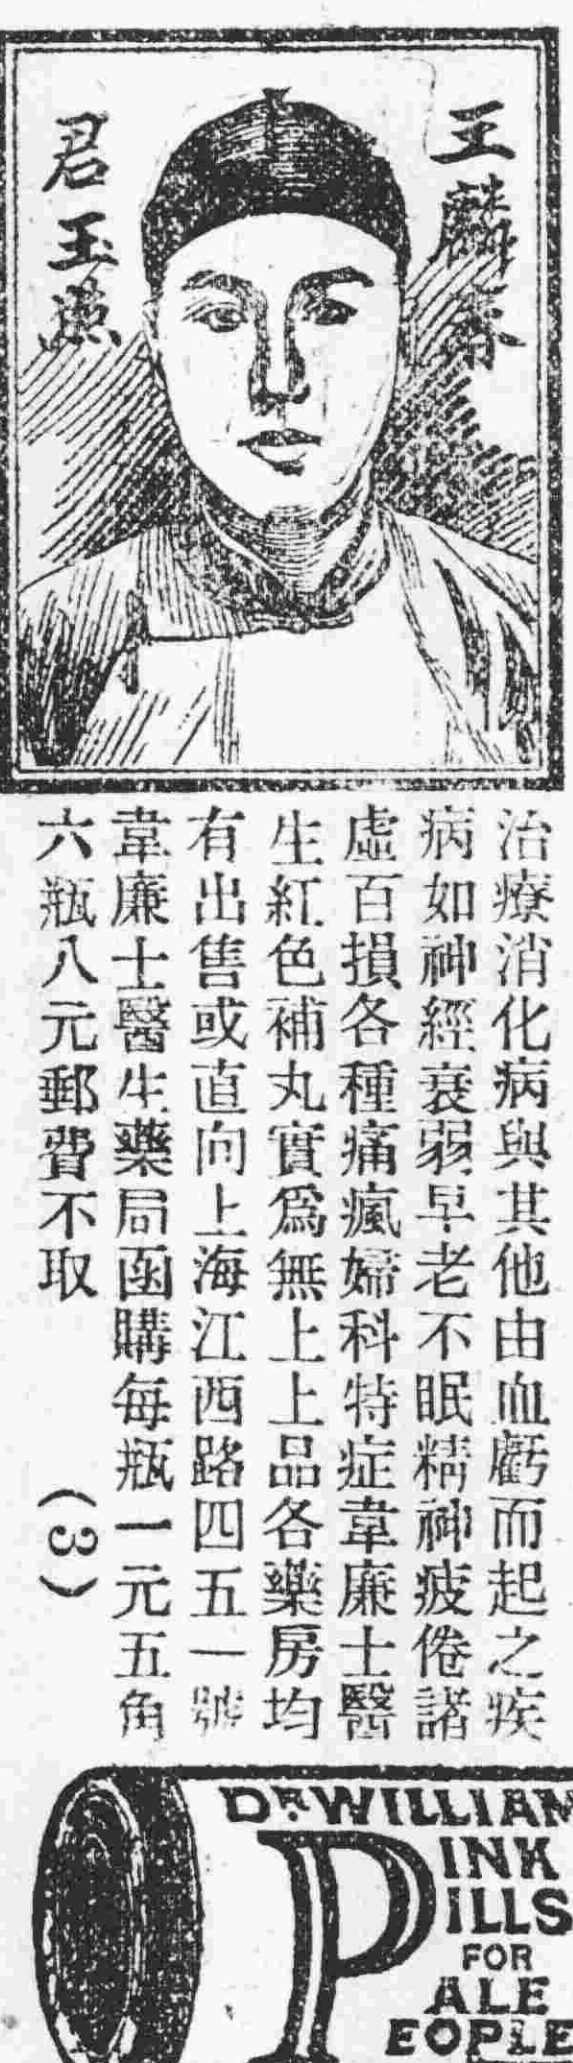 王麟春
君玉照
治療消化病與其他由血虧而起之疾
病如神經衰弱早老不眠精神疲倦諸
虛百損各種痛瘋婦科特症韋廉士醫
生紅色補丸實爲無上上品各藥房均
有出售或直向上海江西路四五一號
韋廉士醫生藥局函購每瓶一元五角
六瓶八元郵費不取
(3)
DR. WILLIAM
PINK
PILLS
FOR
PALE
PEOPLE